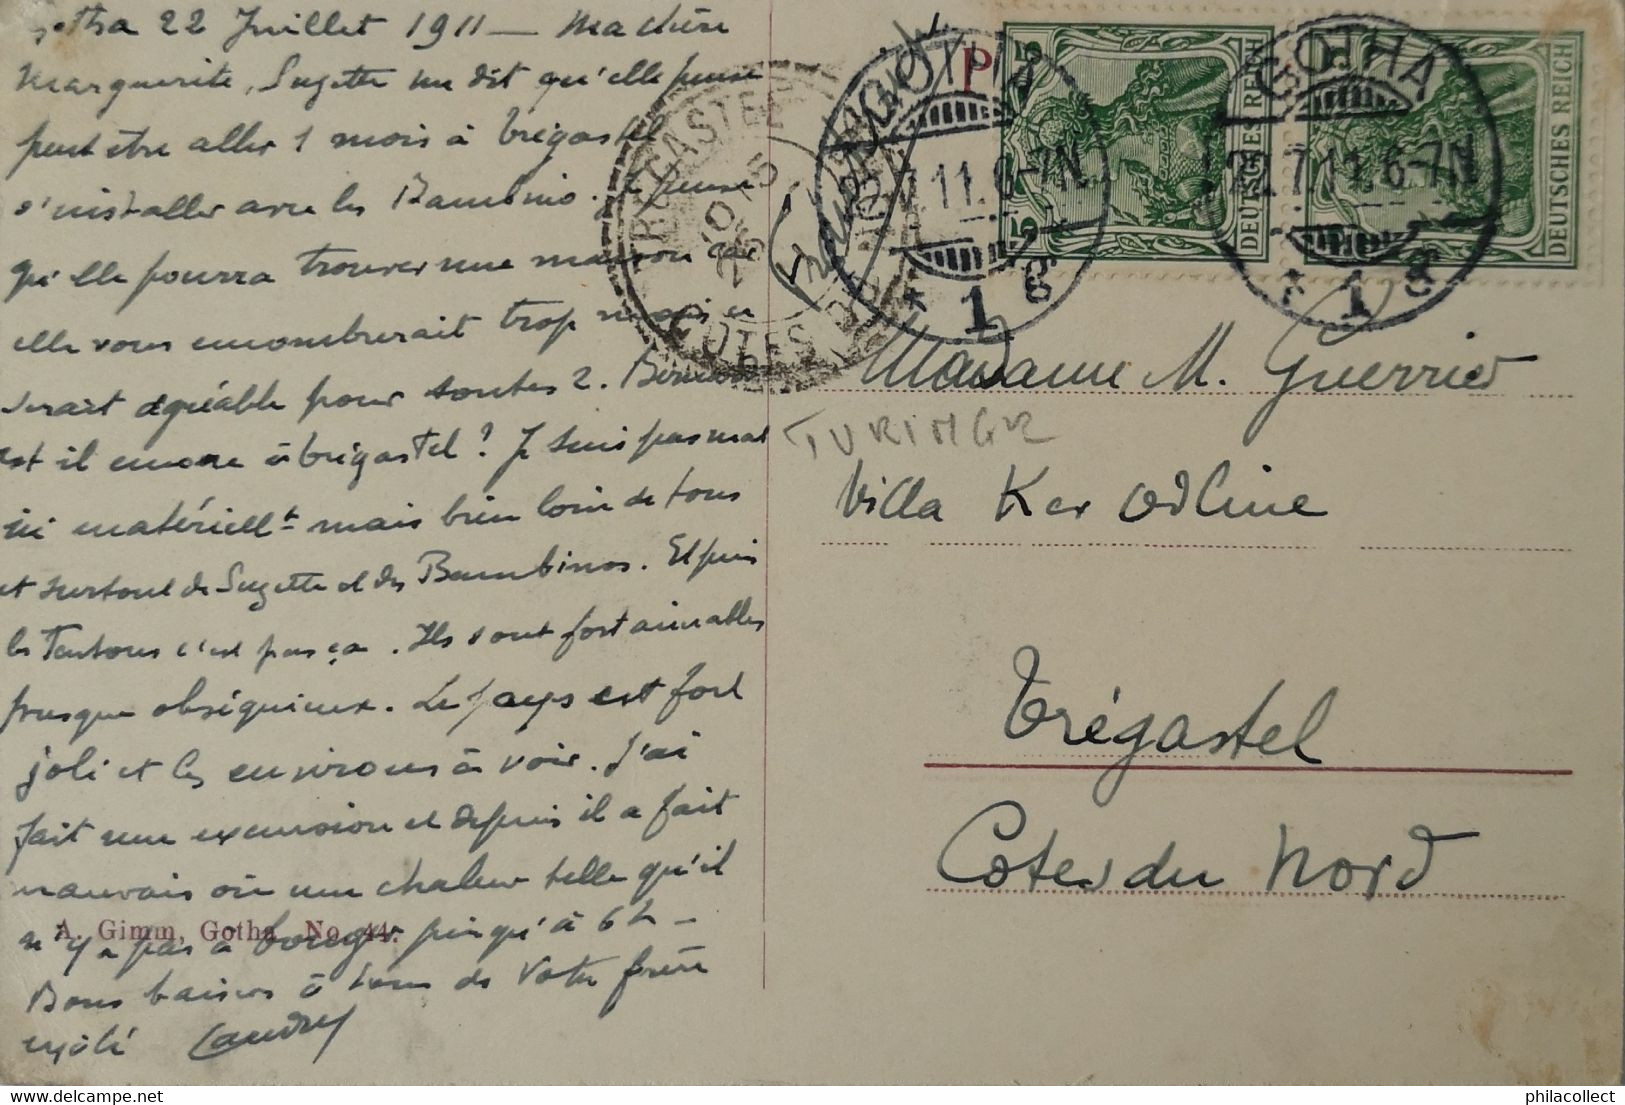 Gotha 22 Juillet 1911 — Ma chère
Marguerite, Suzette me dit qu'elle pense
peut être aller 1 mois à Trégastel
s'installer avec les Bambino. Je pense
qu'elle pourra trouver une maison car
elle vous encombrerait trop mais ce
serait agréable pour toutes 2. Bernard
est il encore à Trégastel? Je suis pas mal
ici matériellt mais bien loin de tous
et surtout de Suzette et des Bambinos. Et puis
les Teutons c'est pas ça. Ils sont fort aimables
presque obséquieux. Le pays est fort
joli et les environs à voir. J'ai
fait une excursion et depuis il a fait
mauvais ou une chaleur telle qu'il
n'y a pas à bouger jusqu'à 6h —
Bons baisers à tous de votre frère
exilé Landry
A. Gimm, Gotha, No. 44.
P
TREGASTEL
COTES DU NORD
GOTHA
.11.6-7N
* 1 g
GOTHA
22.7.11.6-7N
* 1 g
5
5
DEUTSCHES REICH
DEUTSCHES REICH
Madame M. Guerrier
TURINGER
Villa Ker Odline
Trégastel
Cotes du Nord
philacollect